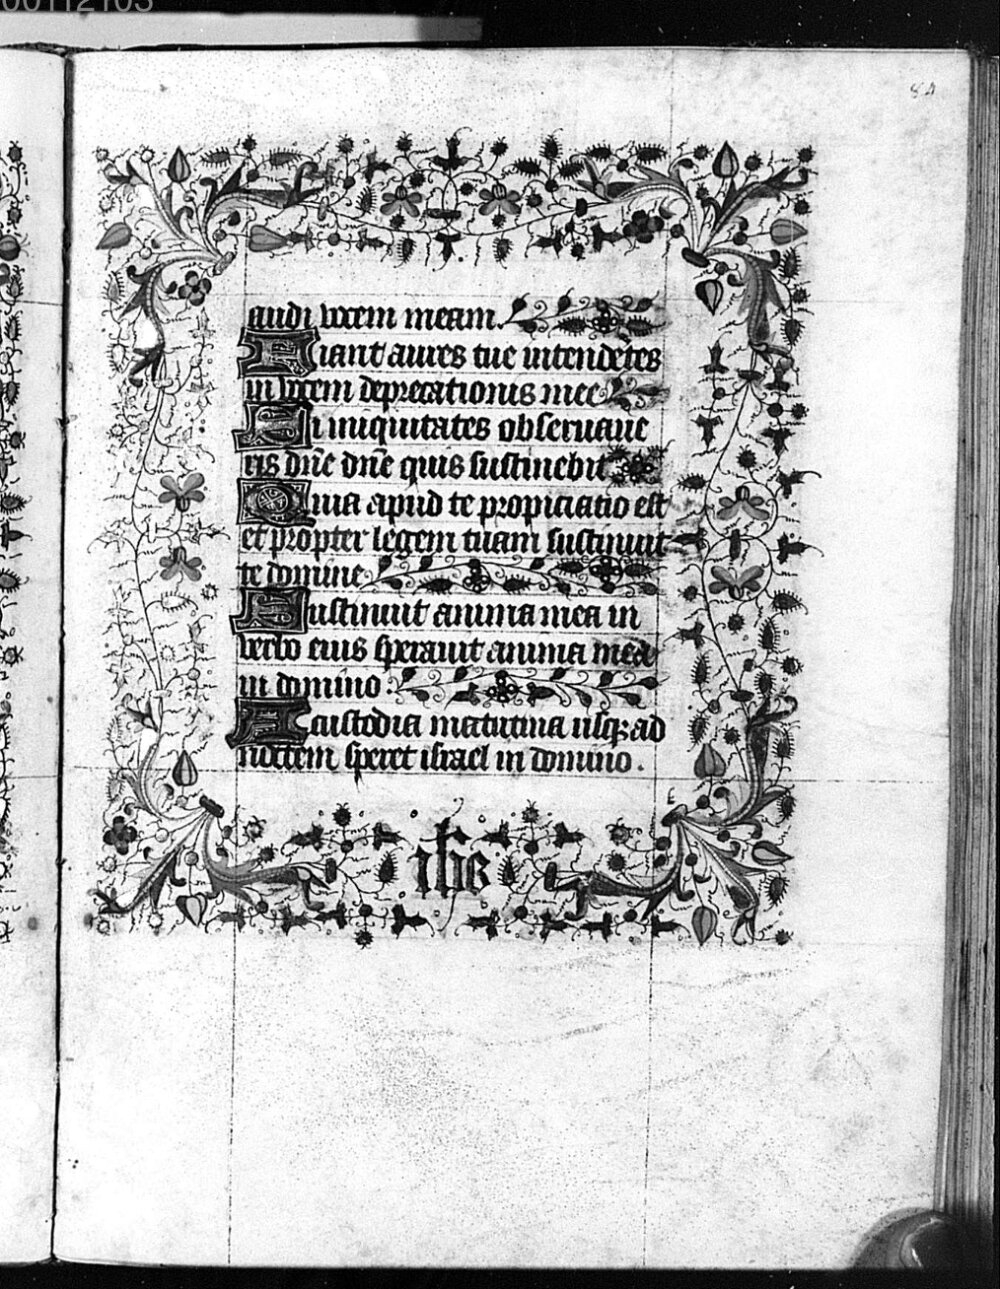 00112103
84
audi vocem meam.
Fiant aures tue intendetes
in vocem deprecationis mee
Si iniquitates obseruaue
ris dn̄e dn̄e quis sustinebit
Quia apud te propiciatio est
et propter legem tuam sustinuit
te domine
Sustinuit anima mea in
verbo eius sperauit anima mea
in domino :
A custodia matutina usqꝫ ad
noctem speret israel in domino .
ihs